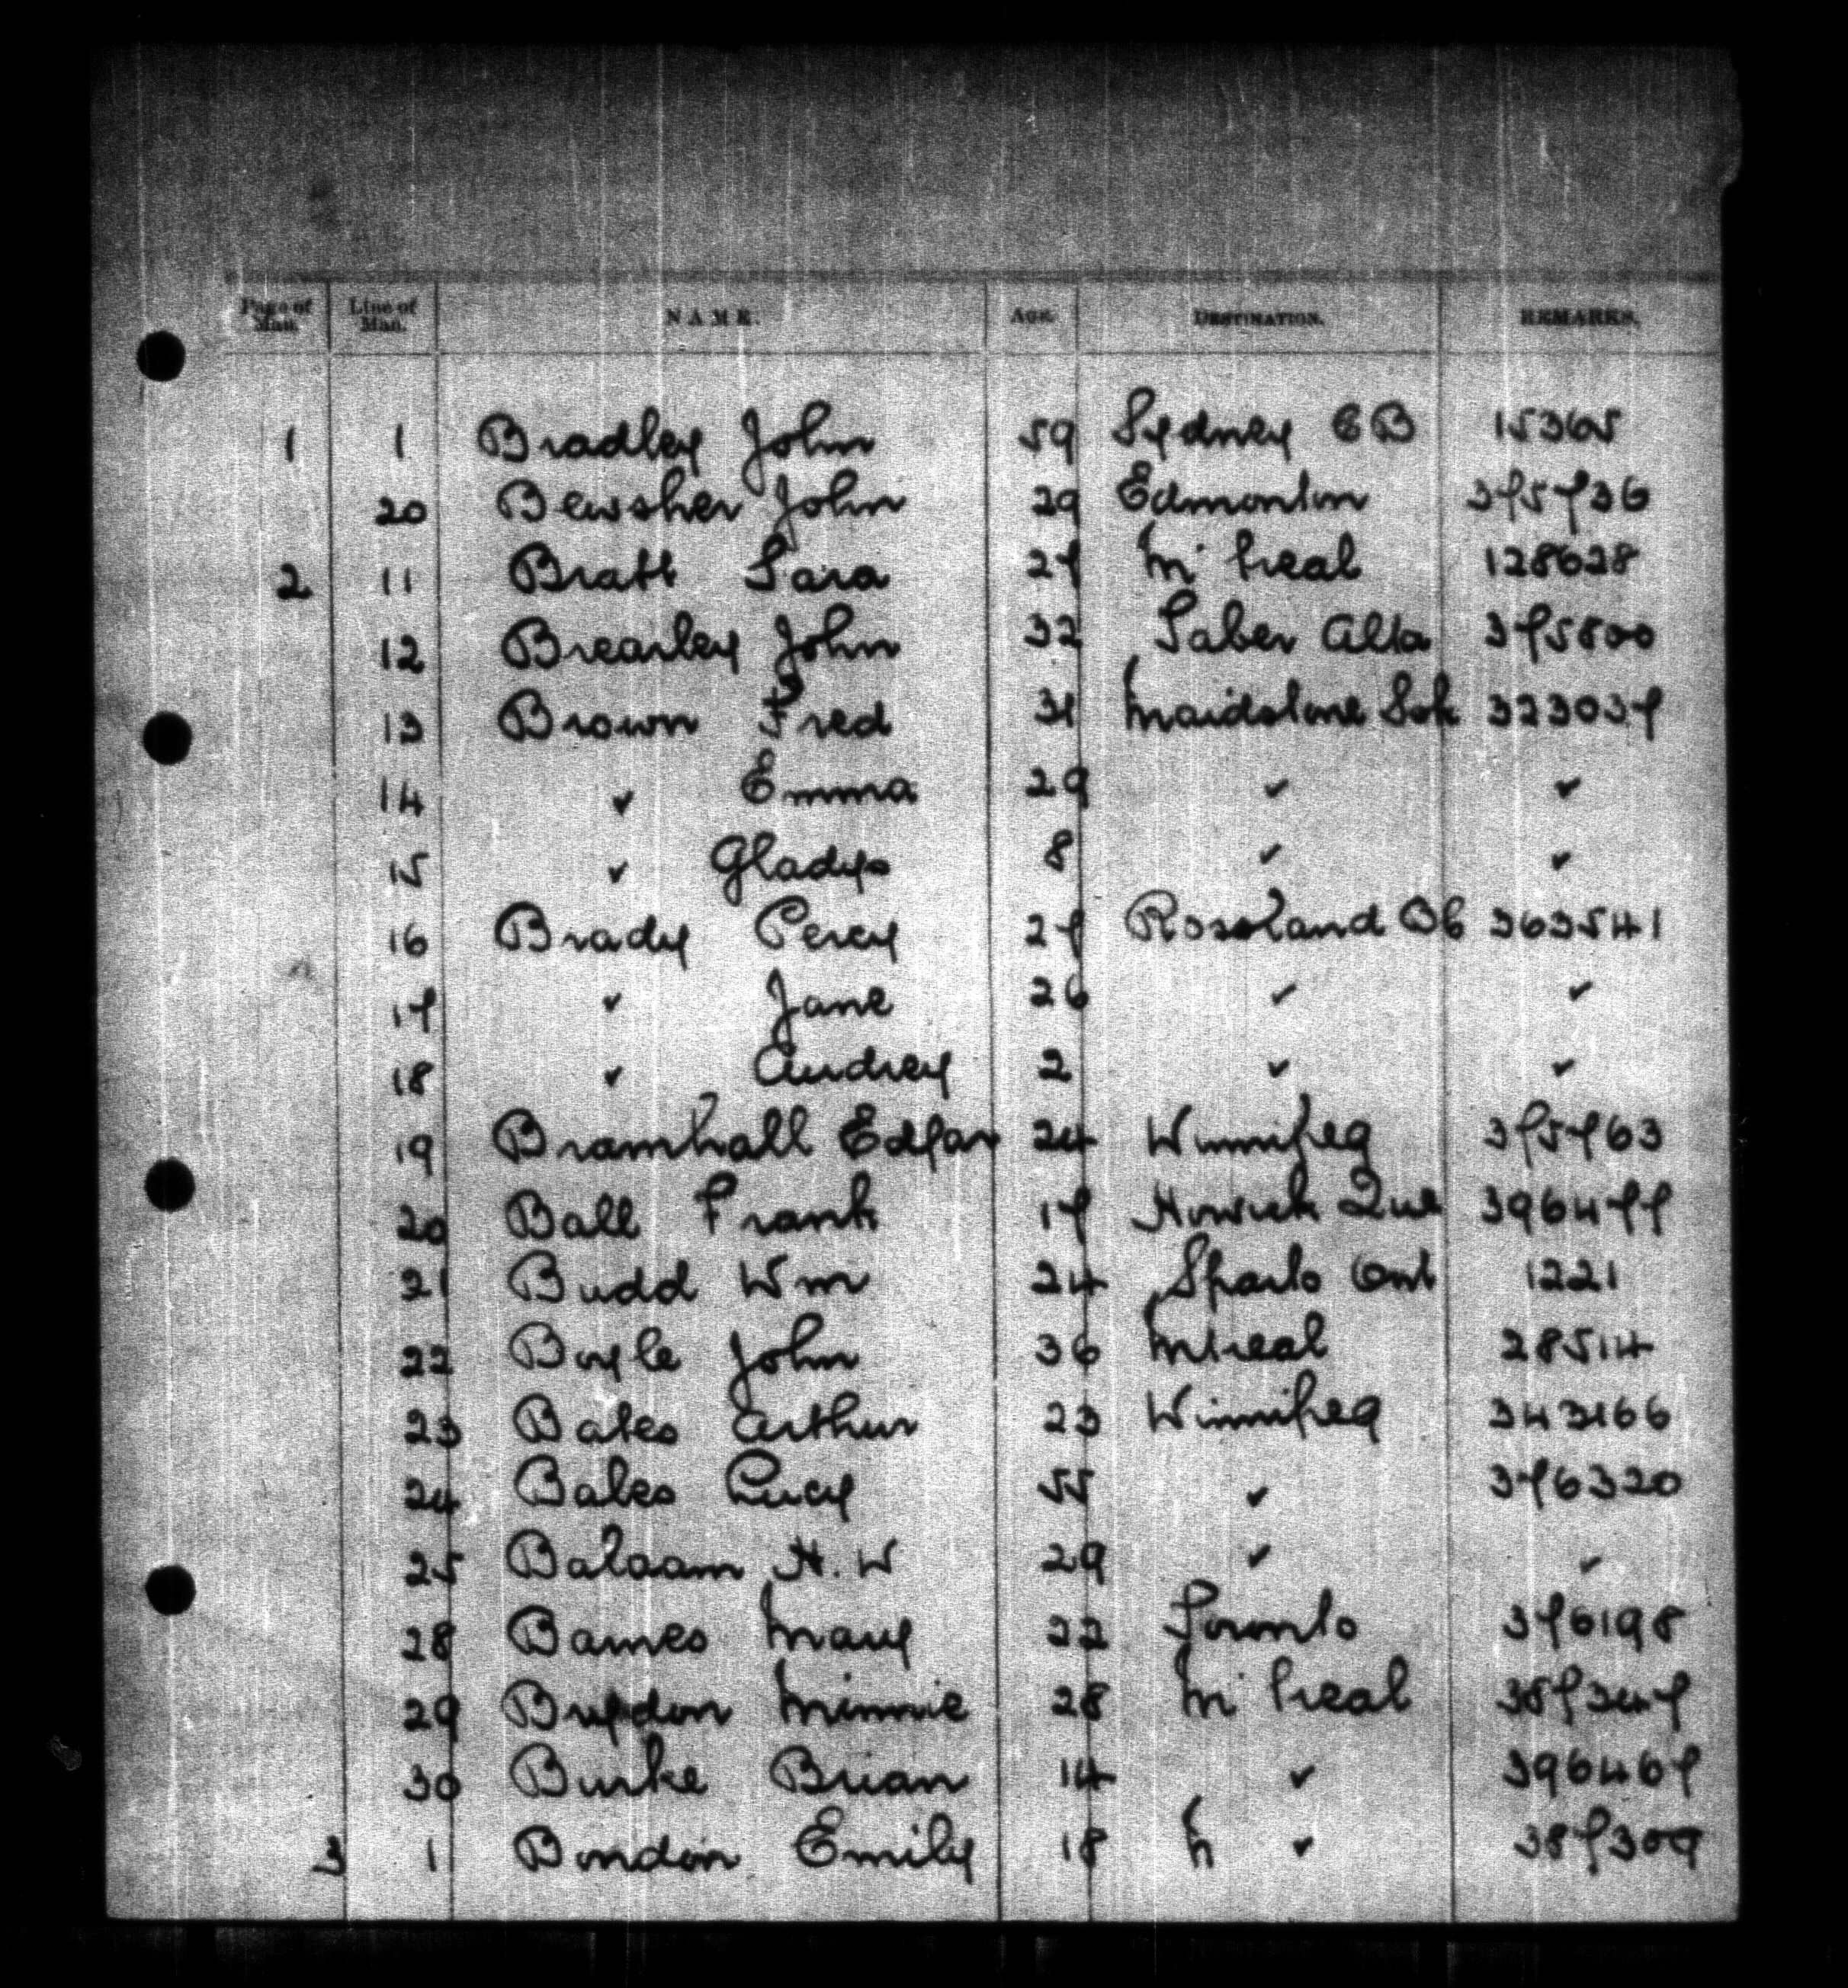 Page of Man. Line of Man. NAME. Age. DESTINATION. REMARKS.
1 1 Bradley John 59 Sydney CB 15365
20 Bewsher John 29 Edmonton 375736
2 11 Bratt Sara 27 M'treal 128628
12 Brearley John 32 Taber Alta 375800
13 Brown Fred 31 Maidstone Sok 323037
14 ✓ Emma 29 ✓ ✓
15 ✓ Gladys 8 ✓ ✓
16 Brady Percy 27 Rossland BC 363541
17 ✓ Jane 26 ✓ ✓
18 ✓ Audrey 2 ✓ ✓
19 Bramhall Edgar 24 Winnipeg 375763
20 Ball Frank 17 Howick Que 396477
21 Budd Wm 24 Sparta Ont 1221
22 Boyle John 36 Mtreal 28514
23 Bates Arthur 23 Winnipeg 343166
24 Bates Lucy 55 ✓ 376320
25 Balaam H.W 29 ✓ ✓
28 Barnes Mary 22 Toronto 376198
29 Brydon Minnie 28 M'treal 387347
30 Burke Brian 14 ✓ 396467
3 1 Emily 18 ✓ 387309